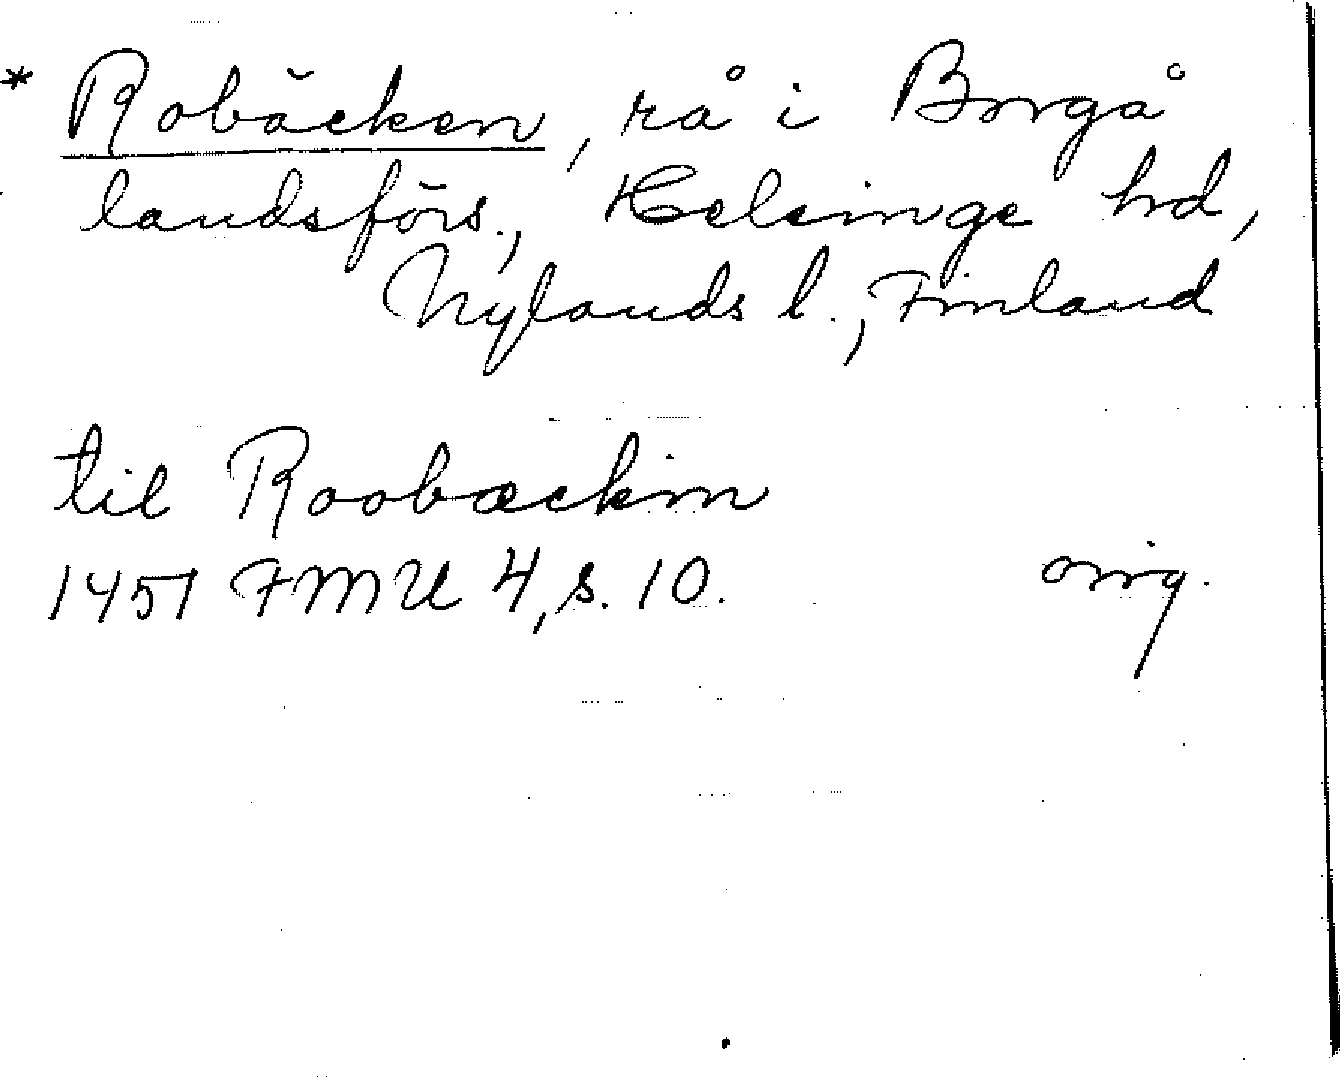 * Robäcken, rå i Borgå
landsförs., Helsinge hd,
Nylands l., Finland
til Roobæckin
1451 FMU 4, s. 10. orig.